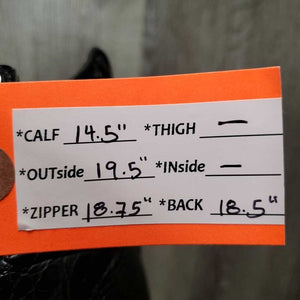 *CALF 14.5" *THIGH —
*OUTside 19.5" *INside —
*ZIPPER 18.75" *BACK 18.5"